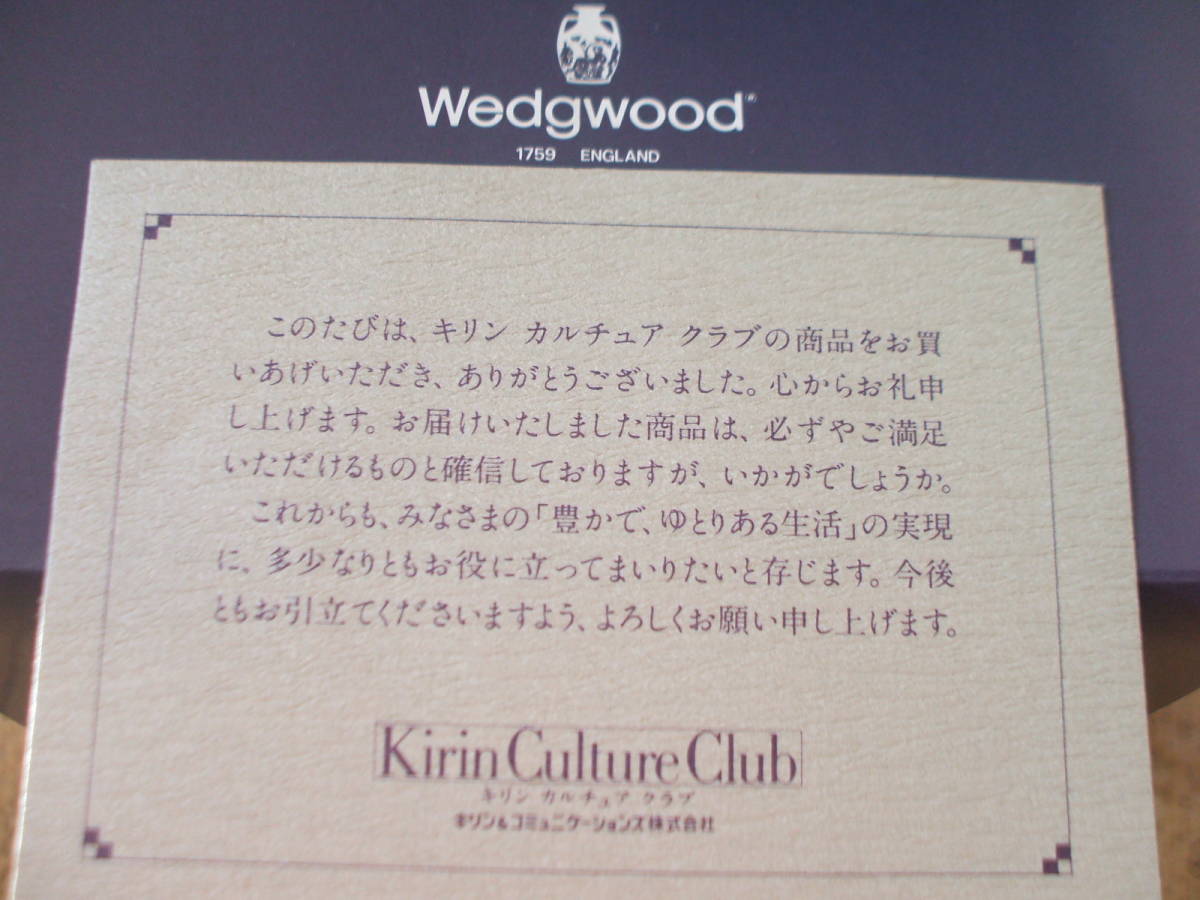 Wedgwood®
1759 ENGLAND
このたびは、キリン カルチュア クラブの商品をお買
いあげいただき、ありがとうございました。心からお礼申
し上げます。お届けいたしました商品は、必ずやご満足
いただけるものと確信しておりますが、いかがでしょうか。
これからも、みなさまの「豊かで、ゆとりある生活」の実現
に、多少なりともお役に立ってまいりたいと存じます。今後
ともお引立てくださいますよう、よろしくお願い申し上げます。
Kirin Culture Club
キリン カルチュア クラブ
キリン&コミュニケーションズ株式会社